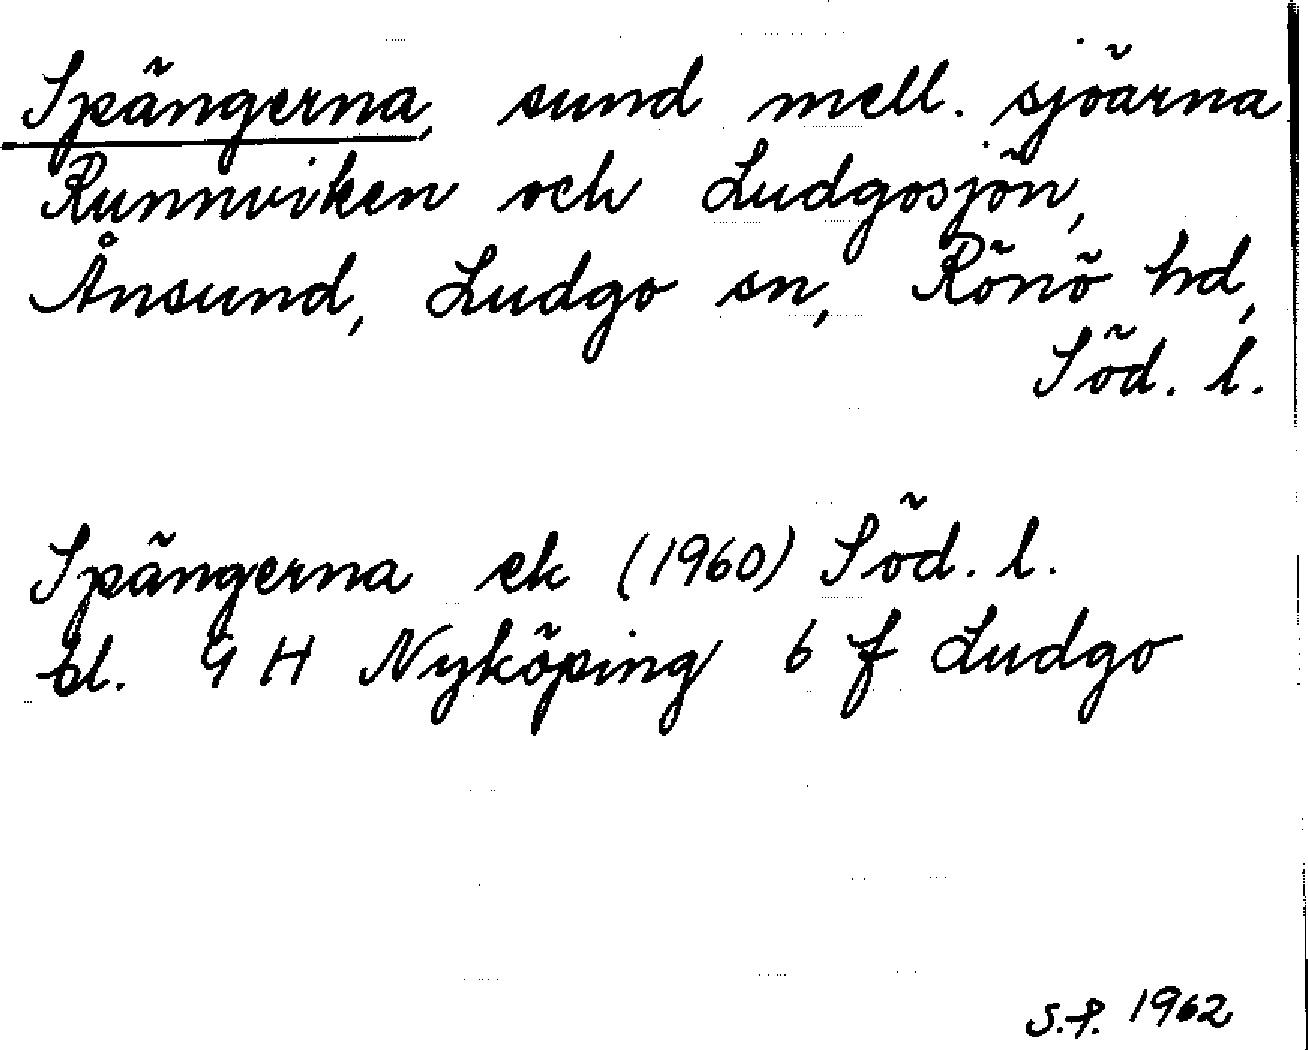 Spängerna, sund mell. sjöarna
Runnviken och Ludgosjön,
Ånsund, Ludgo sn, Rönö hd,
Söd. l.
Spängerna ek (1960) Söd. l.
bl. 9 H Nyköping 6 f Ludgo
S.P. 1962